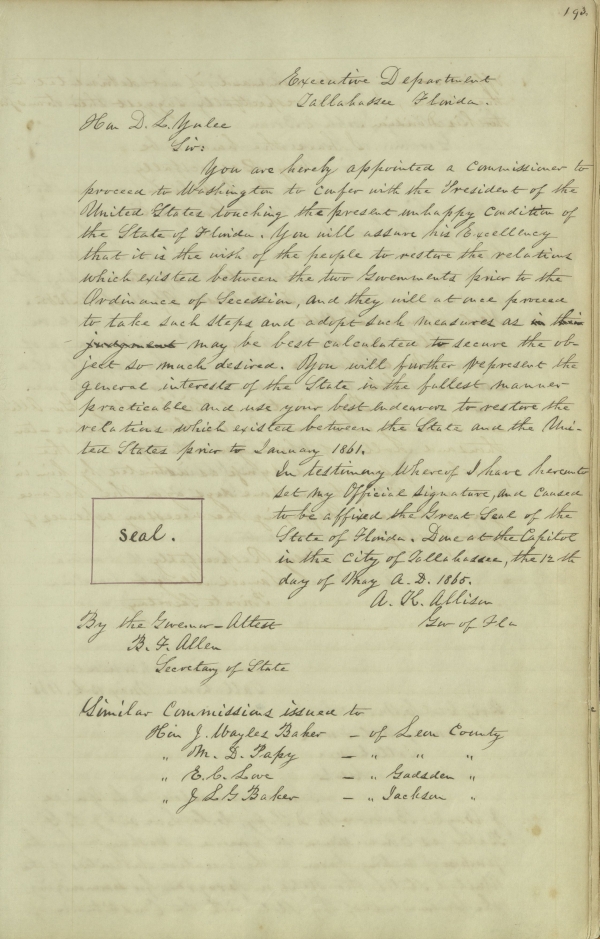 193.
Executive Department
Tallahassee Florida.
Hon D. L. Yulee
Sir:
You are hereby appointed a Commissioner to
proceed to Washington to confer with the President of the
United States touching the present unhappy condition of
the State of Florida. You will assure his Excellency
that it is the wish of the people to restore the relations
which existed between the two Governments prior to the
Ordinance of Secession, and they will at once proceed
to take such steps and adopt such measures as in their
judgment may be best calculated to secure the ob-
ject so much desired. You will further represent the
general interests of the State in the fullest manner
practicable and use your best endeavors to restore the
relations which existed between the State and the Uni-
ted States prior to January 1861.
In testimony Whereof I have hereunto
set my Official signature, and caused
to be affixed the Great Seal of the
State of Florida. Done at the Capitol
in the city of Tallahassee, the 12th
day of May A. D. 1865.
seal.
A. K. Allison
Gov of Fla
By the Governor – Attest
B. F. Allen
Secretary of State
Similar Commissions issued to
Hon J. Wayles Baker – of Leon County
" M. D. Papy – " " "
" E. C. Love – " Gadsden "
" J L G Baker – " Jackson "